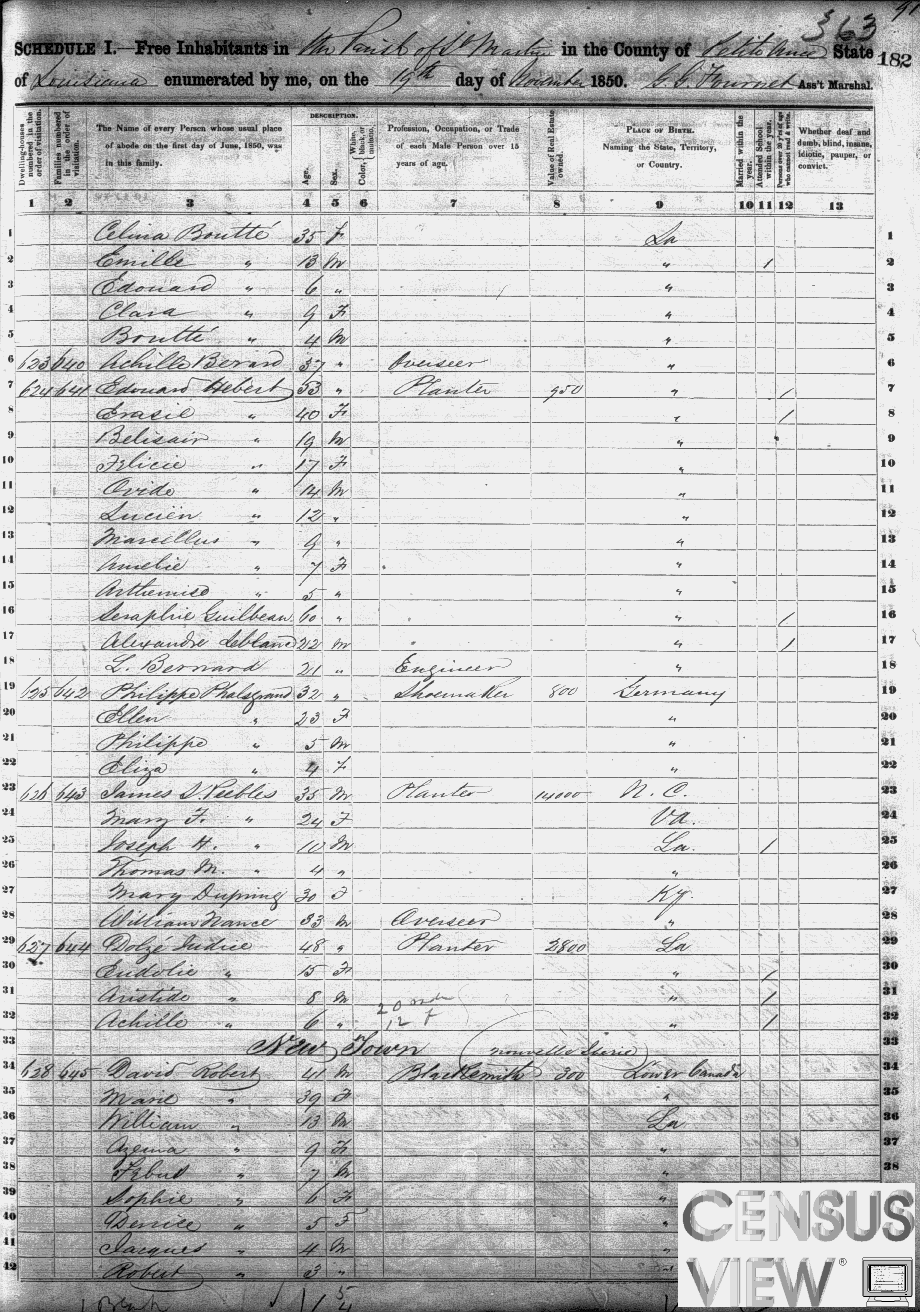 363
SCHEDULE I.—Free Inhabitants in the Parish of St Martin in the County of Petite Anse State 182
of Louisiana enumerated by me, on the 19th day of November 1850. Fournet Ass't Marshal.
Dwelling-houses numbered in the order of visitation.
Families numbered in the order of visitation.
The Name of every Person whose usual place of abode on the first day of June, 1850, was in this family.
DESCRIPTION.
Age.
Sex.
Color, White, black, or mulatto.
Profession, Occupation, or Trade of each Male Person over 15 years of age.
Value of Real Estate owned.
PLACE OF BIRTH. Naming the State, Territory, or Country.
Married within the year.
Attended School within the year.
Persons over 20 y'rs of age who cannot read & write.
Whether deaf and dumb, blind, insane, idiotic, pauper, or convict.
1 2 3 4 5 6 7 8 9 10 11 12 13
1 Celina Boutté 35 f La 1
2 Emille " 13 m " 1 2
3 Edouard " 6 " " 3
4 Clara " 9 F " 4
5 Boutté " 4 m " 5
6 623 640 Achille Berard 37 " Overseer " 6
7 624 641 Edouard Hebert 53 " Planter 950 " 1 7
8 Erasie " 40 F " 1 8
9 Belisair " 19 m " 9
10 Felicie " 17 F " 10
11 Ovide " 14 m " 11
12 Lucien " 12 " " 12
13 Marcellus " 9 " " 13
14 Amelie " 7 F " 14
15 Arthemise " 5 " " 15
16 Seraphie Guilbeau 60 " " 1 16
17 Alexandre Leblanc 22 m " " 1 17
18 L. Bernard 21 " Engineer " 18
19 625 642 Philippe Phalsgrand 32 " Shoemaker 800 Germany 19
20 Ellen " 23 F " 20
21 Philippe " 5 m " 21
22 Eliza " 4 F " 22
23 626 643 James S. Peebles 35 m Planter 14000 N. C. 23
24 Mary F. " 24 F Va. 24
25 Joseph H. " 10 m La. 1 25
26 Thomas M. " 4 " " 26
27 Mary Dupuing 30 F Ky. 27
28 William Nance 33 m Overseer " 28
29 627 644 Dolze Judice 48 " Planter 2800 La 29
30 Eudolie " 15 F " 1 30
31 Aristide " 8 m " 1 31
32 Achille " 6 " 20 m 12 f " 1 32
33 New Town nouvelle Iberie 33
34 628 645 David Robert 41 m Blacksmith 300 Lower Canada 34
35 Marie " 39 F " 35
36 William " 13 m La 36
37 Azema " 9 F " 37
38 " 7 m " 38
39 Sophie " 6 F "
40 Denise " 5 F "
41 Jacques " 4 m
42 Robert " 3 "
CENSUS
VIEW ®